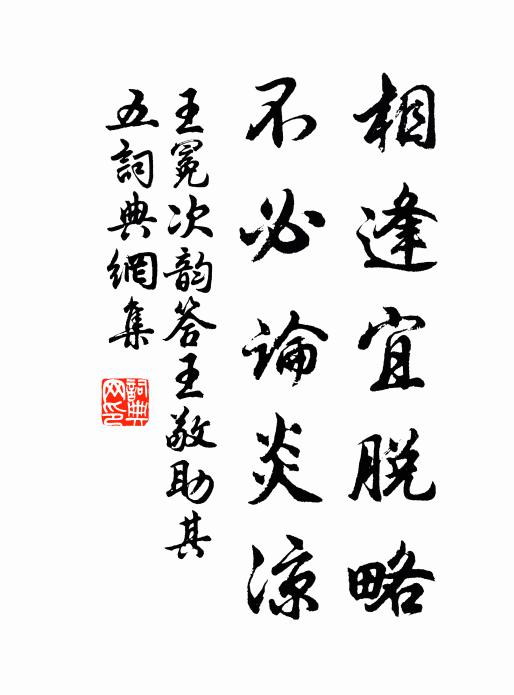 相逢宜脱略
不必論炎涼
王冕次韵答王敬助其
五詞典網集
詞典网印